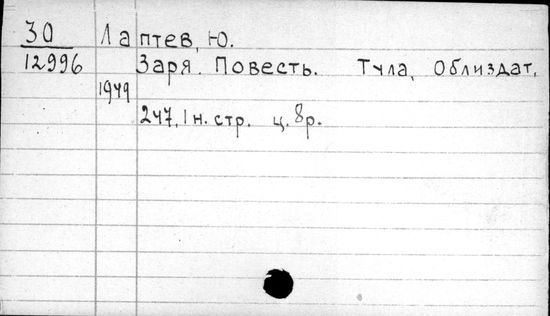 30 Лаптев, Ю.
12996 Заря. Повесть. Тула, Облиздат,
1949
247, 1 н. стр. ц. 8 р.